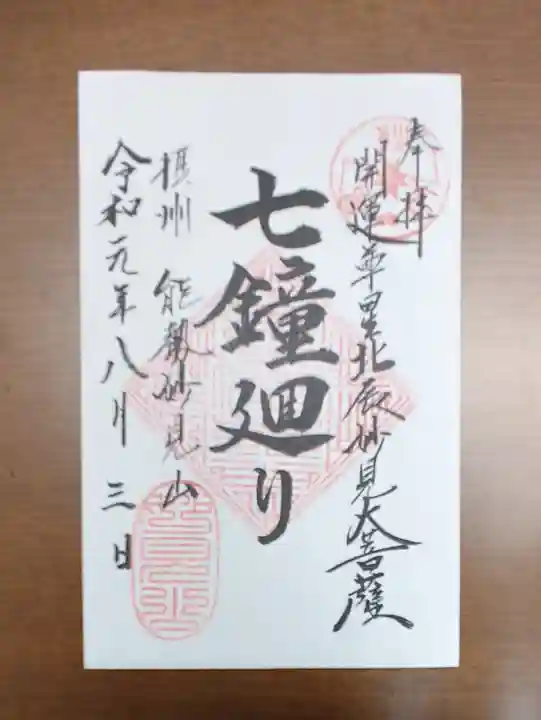 奉拝
開運
北辰妙見大菩薩
七鐘廻り
摂州 能勢妙見山
令和元年八月三日